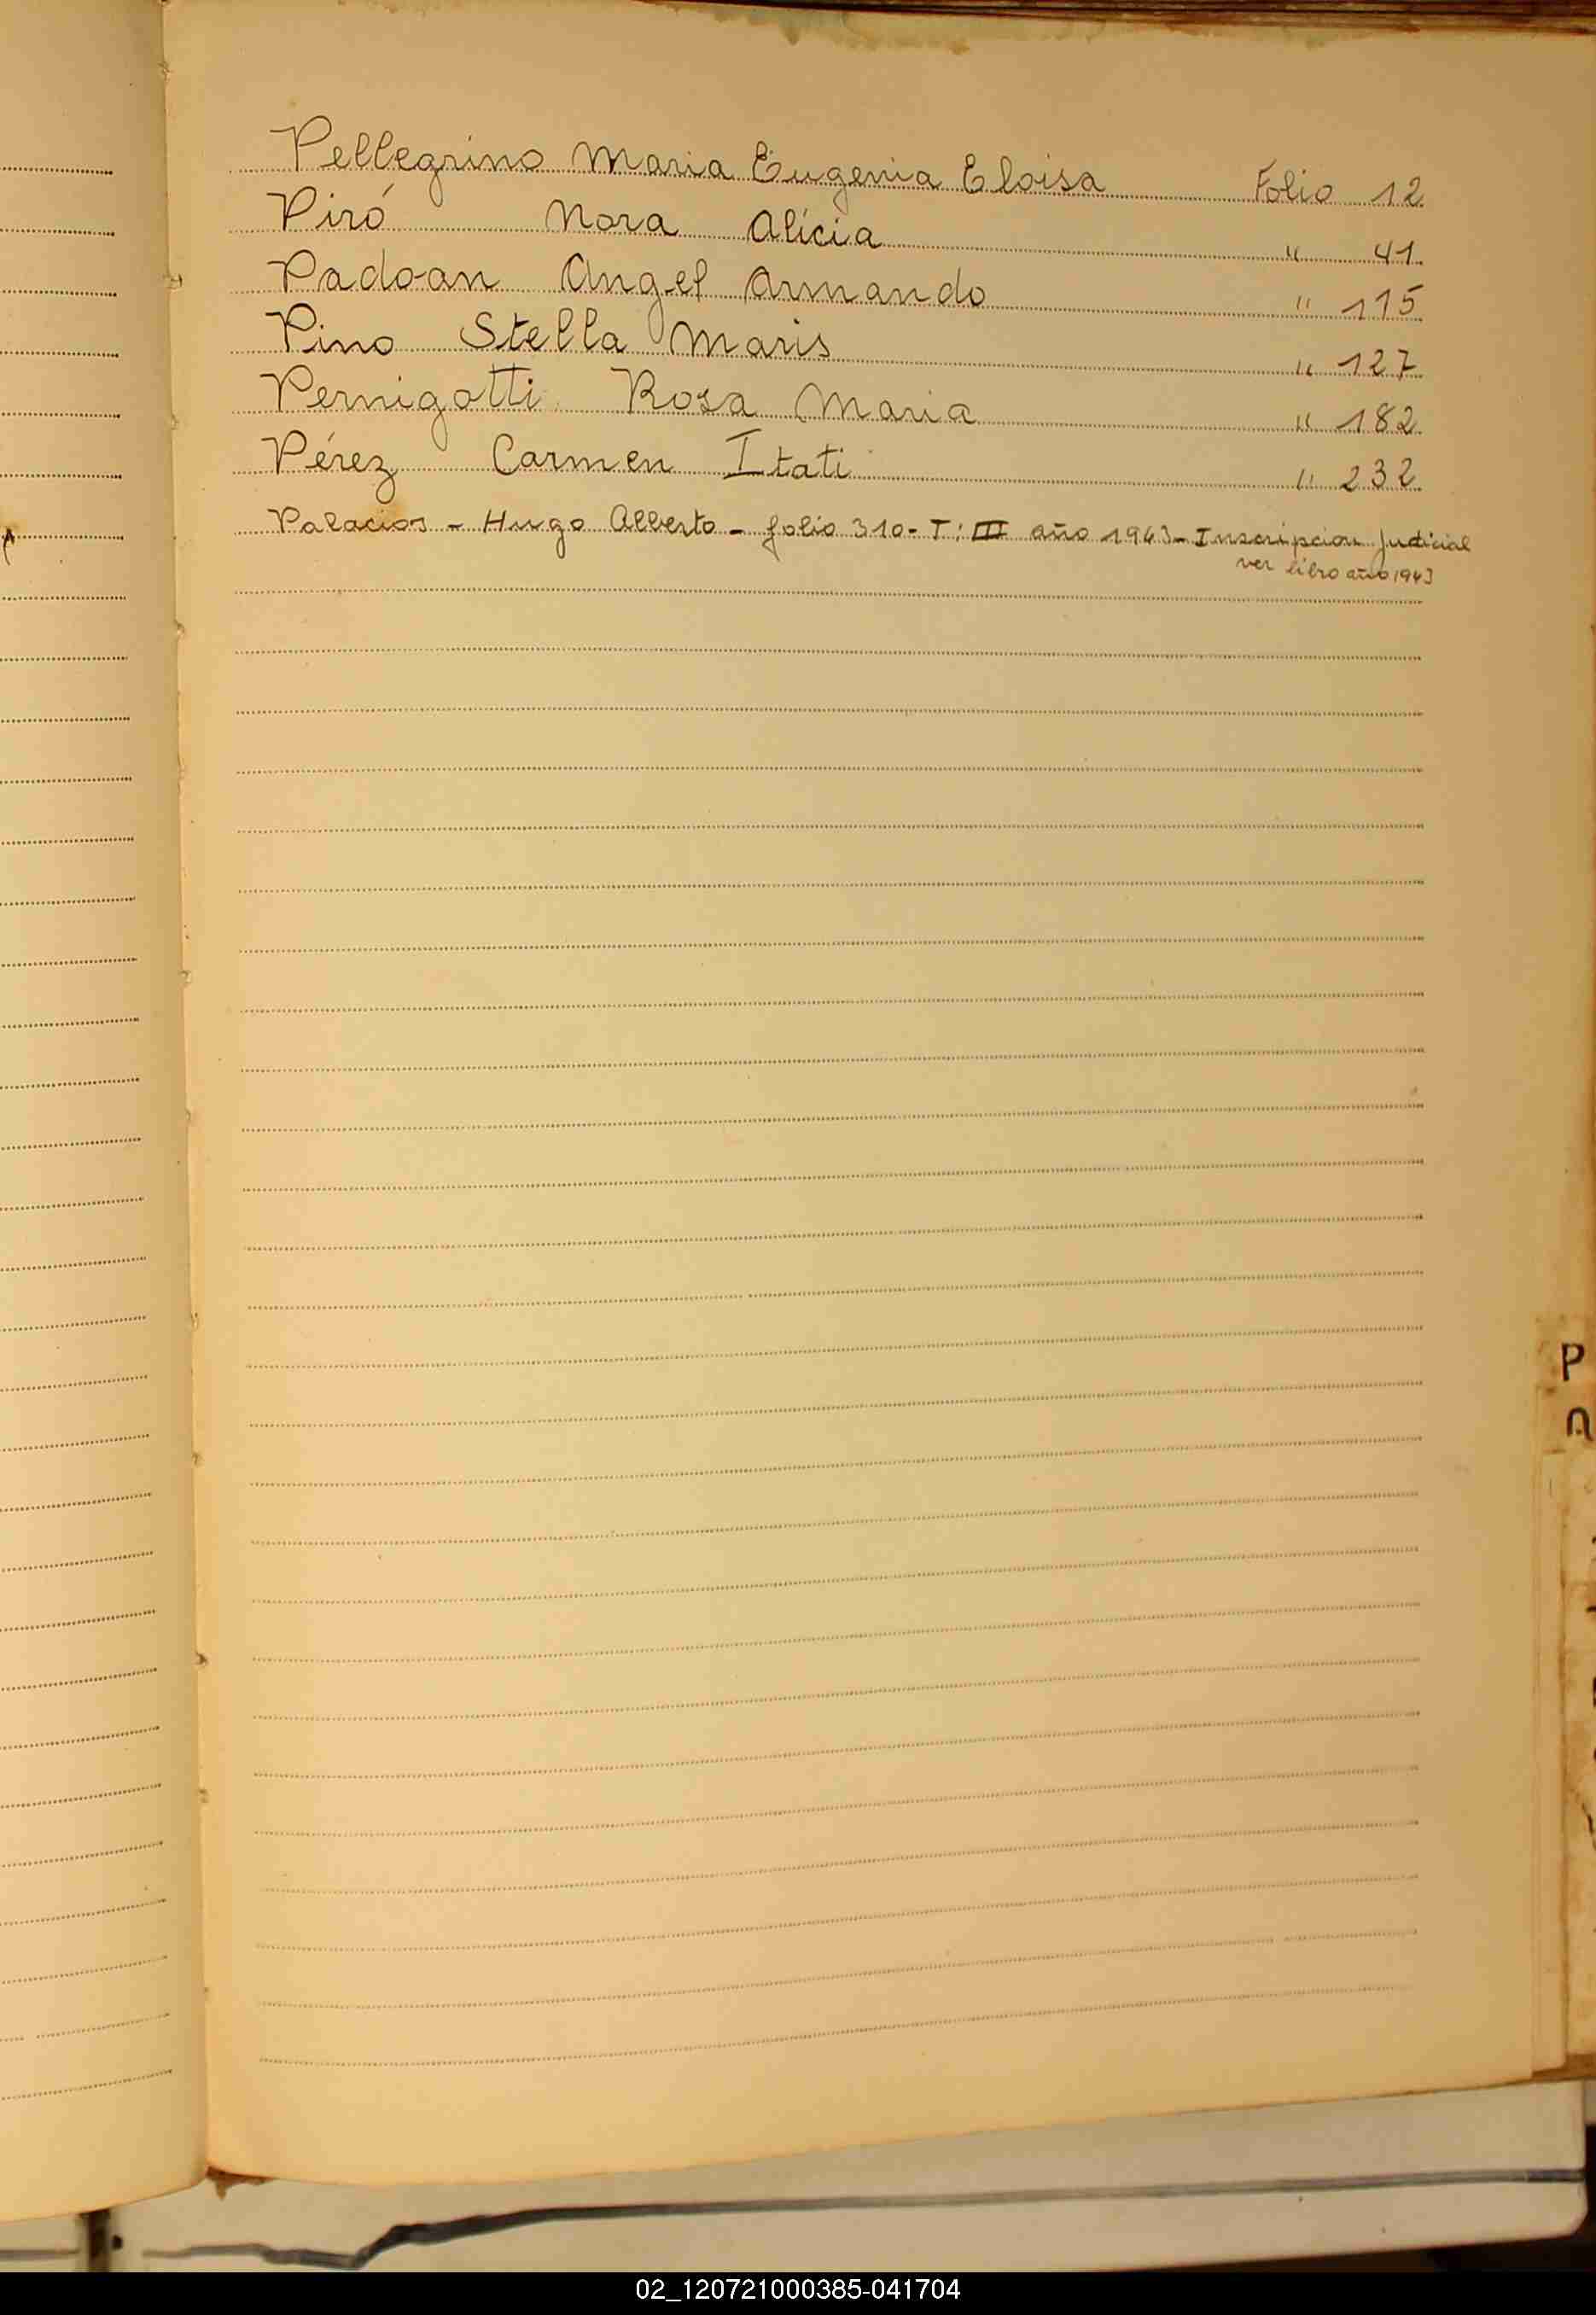 Pellegrino Maria Eugenia Eloisa Folio 12
Piró Nora Alicia " 41
Padoan Angel Armando " 115
Pino Stella Maris " 127
Pernigotti Rosa Maria " 182
Pérez Carmen Itati " 232
Palacios - Hugo Alberto - folio 310 - T: III año 1943 - Inscripcion Judicial
ver libro año 1943
P
02_120721000385-041704